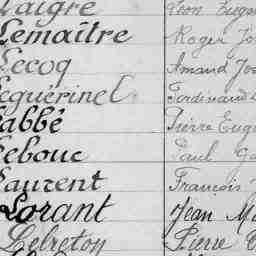 Laigre Léon Eugè
Lemaître Roger Jo
Lecoq Amand Jos
Lequérinel Ferdinand
Labbé Pierre Eug
Lebouc Paul Ga
Laurent François
Lorant Jean Ma
Lebreton Pierre